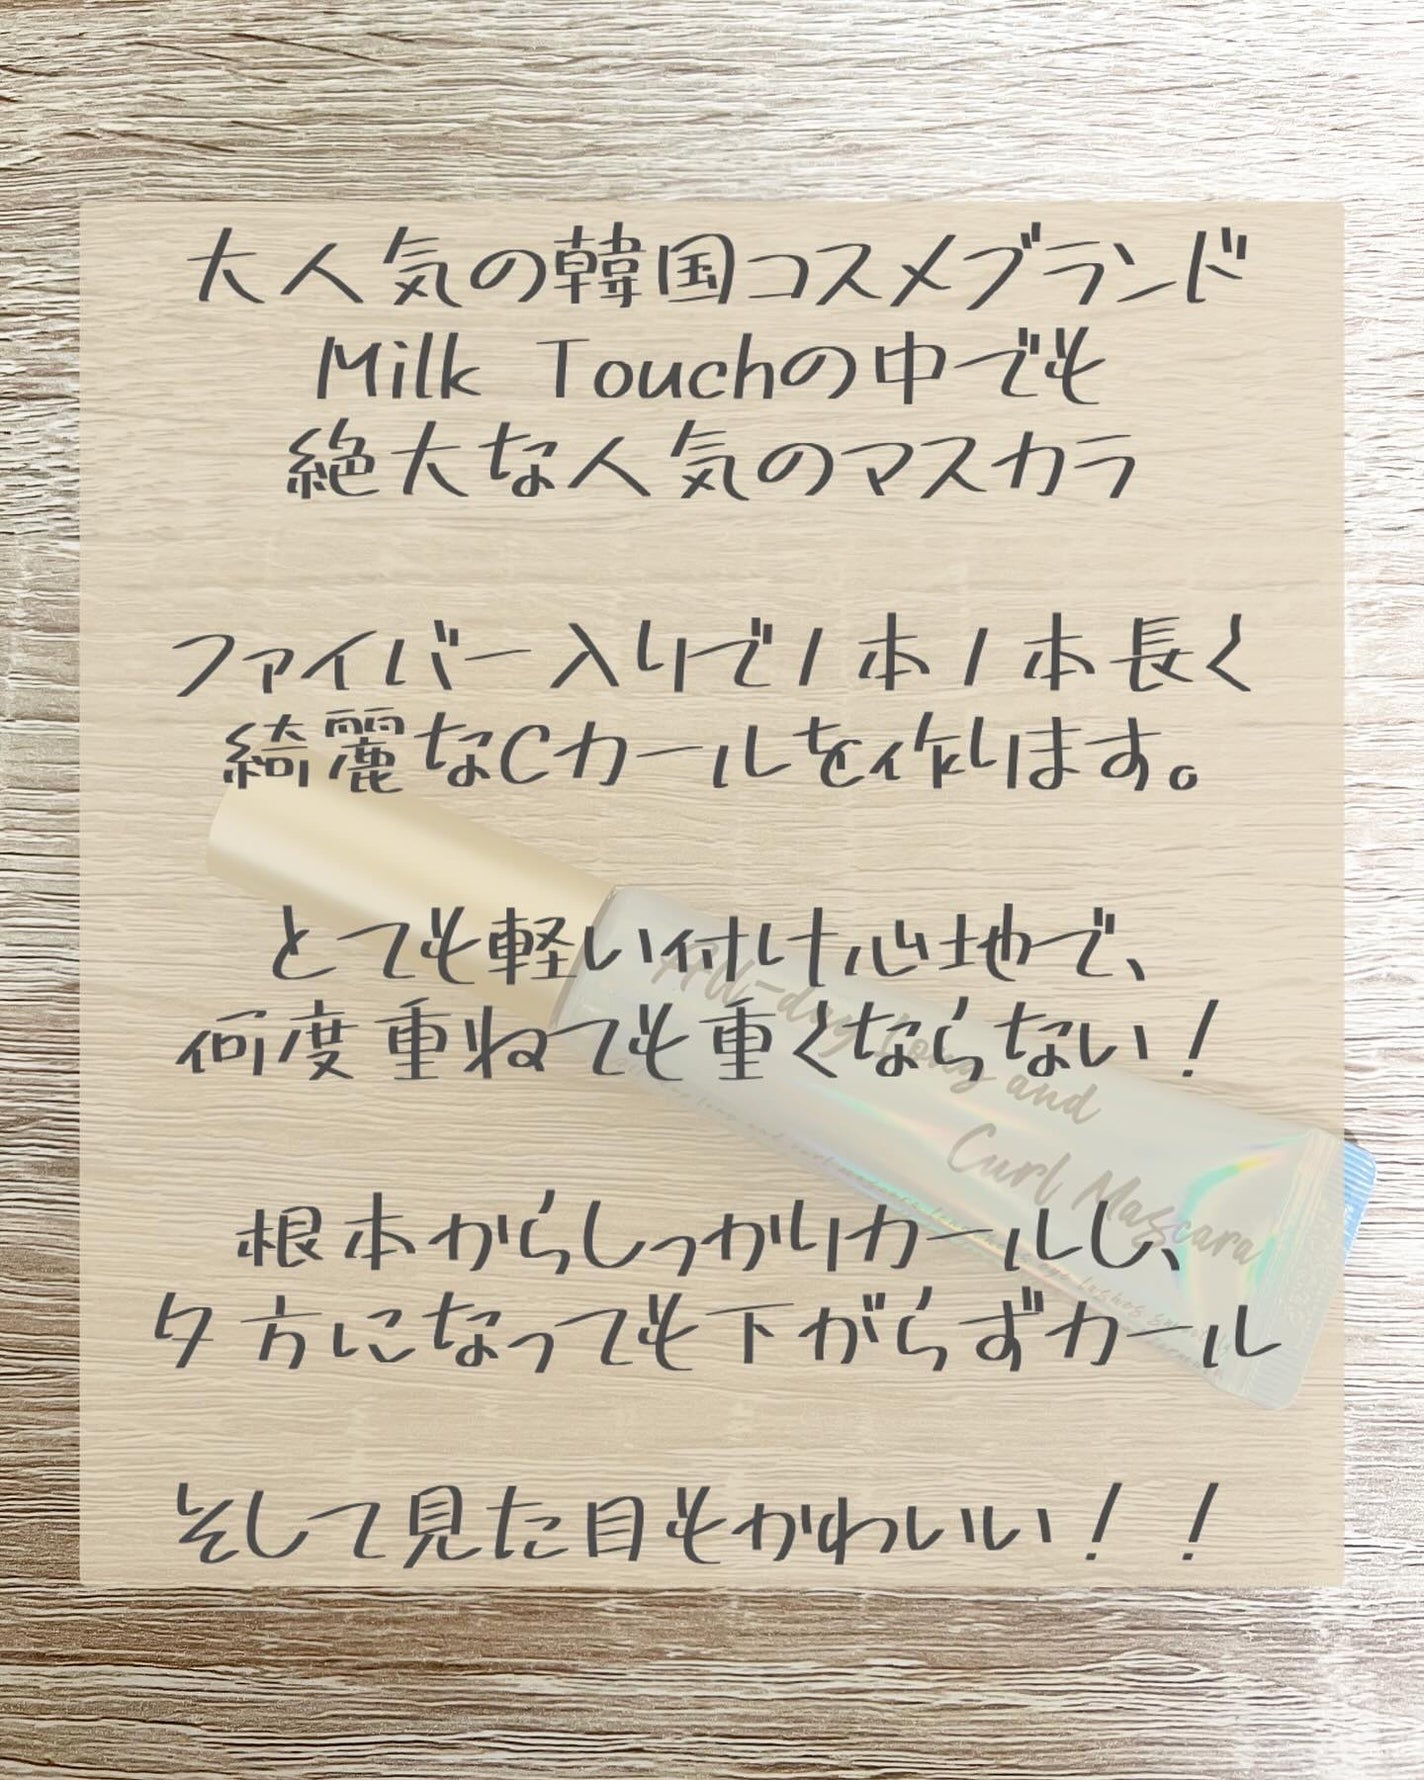 大人気の韓国コスメブランド
Milk Touchの中でも
絶大な人気のマスカラ
ファイバー入りで1本1本長く
綺麗なCカールを作ります。
とても軽い付け心地で、
何度重ねても重くならない!
根本からしっかりカールし、
夕方になっても下がらずカール
そして見た目もかわいい!!
All-day Long and
Curl Mascara